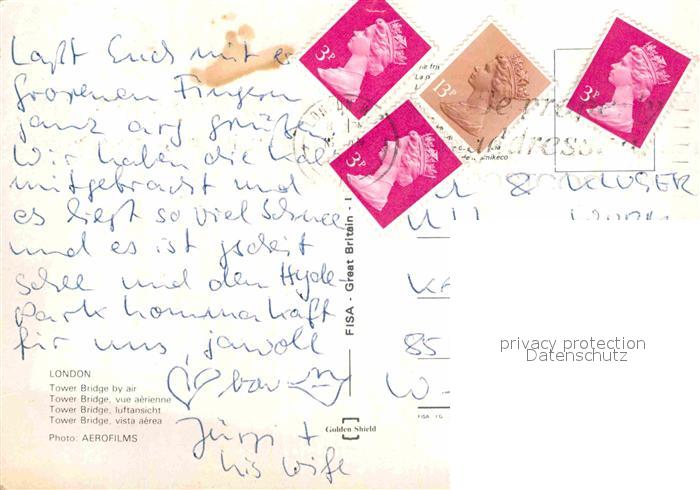 Laßt Euch mit er
frorenen Fingern
ganz arg grüßen
Wir haben die Käl
mitgebracht und
es liegt so viel Schnee
und es ist gscheit
schee und den Hyde-
park hamma kaft
für uns, jawoll
Jürgi +
his wife
LONDON
Tower Bridge by air
Tower Bridge, vue aérienne
Tower Bridge, luftansicht
Tower Bridge, vista aérea
Photo: AEROFILMS
FISA - Great Britain - I
Golden Shield
3P
3P
13P
3P
address
& KLUGER
85
W-
privacy protection
Datenschutz